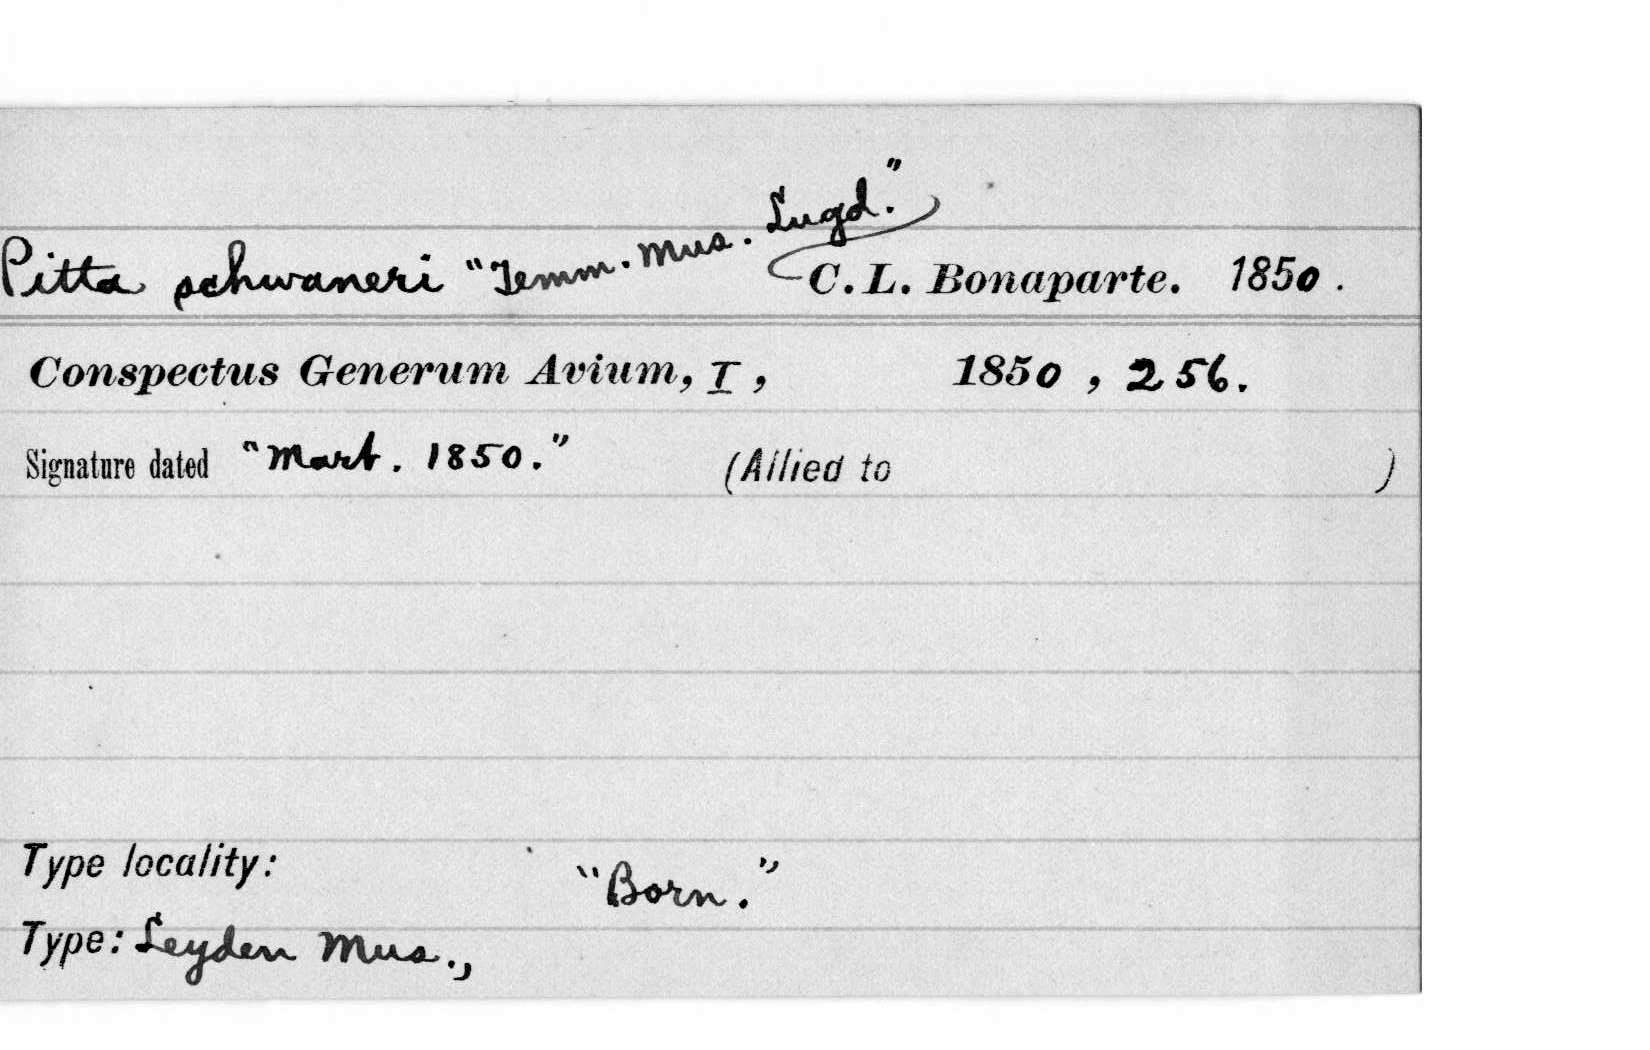 Pitta schwaneri "Temm. Mus. Lugd." C. L. Bonaparte. 1850.
Conspectus Generum Avium, I, 1850, 256.
Signature dated "Mart. 1850." (Allied to )
Type locality: "Born."
Type: Leyden Mus.,